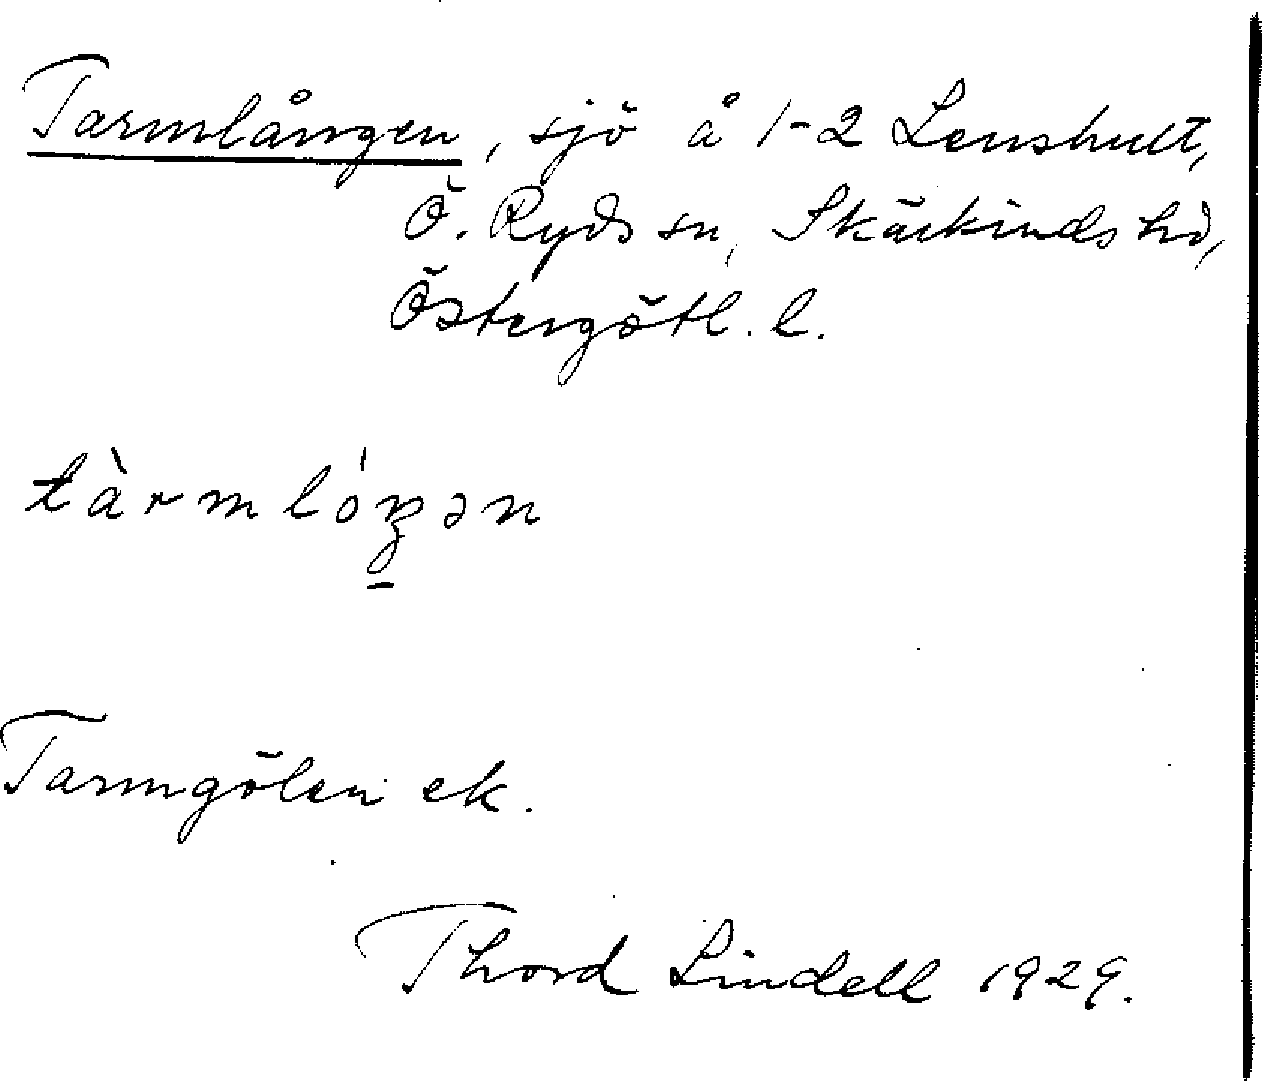 Tarmlången, sjö å 1-2 Lenshult,
Ö. Ryds sn, Skärkinds hd,
Östergötl. l.
tàrmlóŋən
Tarmgölen ek.
Thord Lindell 1929.